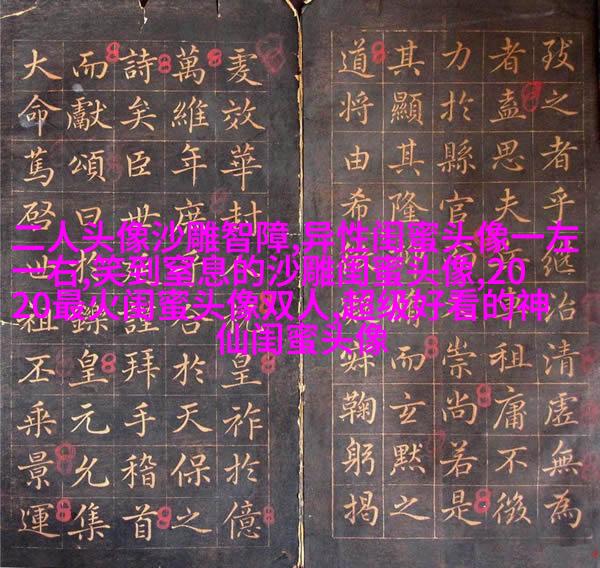 二人头像沙雕智障,异性闺蜜头像一左
一右,笑到窒息的沙雕闺蜜头像,20
20最火闺蜜头像双人,超级好看的神
仙闺蜜头像
之者乎治清虛無為
者盍思夫祖庸不
力於縣官崇尚若是
其顯其隆而玄默之
道將由希鞠躬揭
戛效華封祝皇祚於億
萬維年合於天保之
詩矣臣世謹拜手稽首
而獻頌曰於鑠皇元允集
大命篤啓世祖丕乘景運